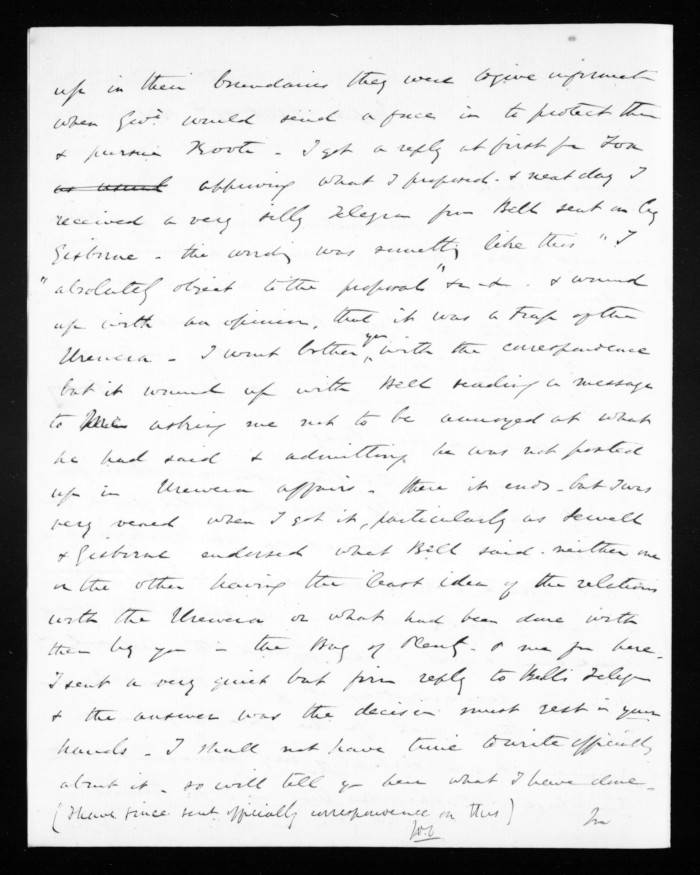 up in their boundaries they were to give informatn
when Govt would send a force in to protect them
& pursue Kooti - I got a reply at first fm Fox
as usual approving what I proposed. & next day I
received a very silly Telegram from Bell sent on by
Gisborne - the wording was something like this "I
"absolutely object to the proposals" &c &c. & wound
up with an opinion, that it was a trap of the
Urewera - I wont bother you with the correspondence
but it wound up with Bell sending a message
to asking me not to be annoyed at what
he had said & admitting he was not posted
up in Urewera affairs - there it ends - but I was
very vexed when I got it, particularly as Sewell
& Gisborne endorsed what Bell said. neither one
or the other having the least idea of the relations
with the Urewera or what had been done with
them by you in the Bay of Plenty. & me fm here.
I sent a very quiet but firm reply to Bell's Telegm
& the answer was the decision must rest in your
hands - I shall not have time to write officially
about it - so will tell you here what I have done -
(I have since sent officially correspondence on this)